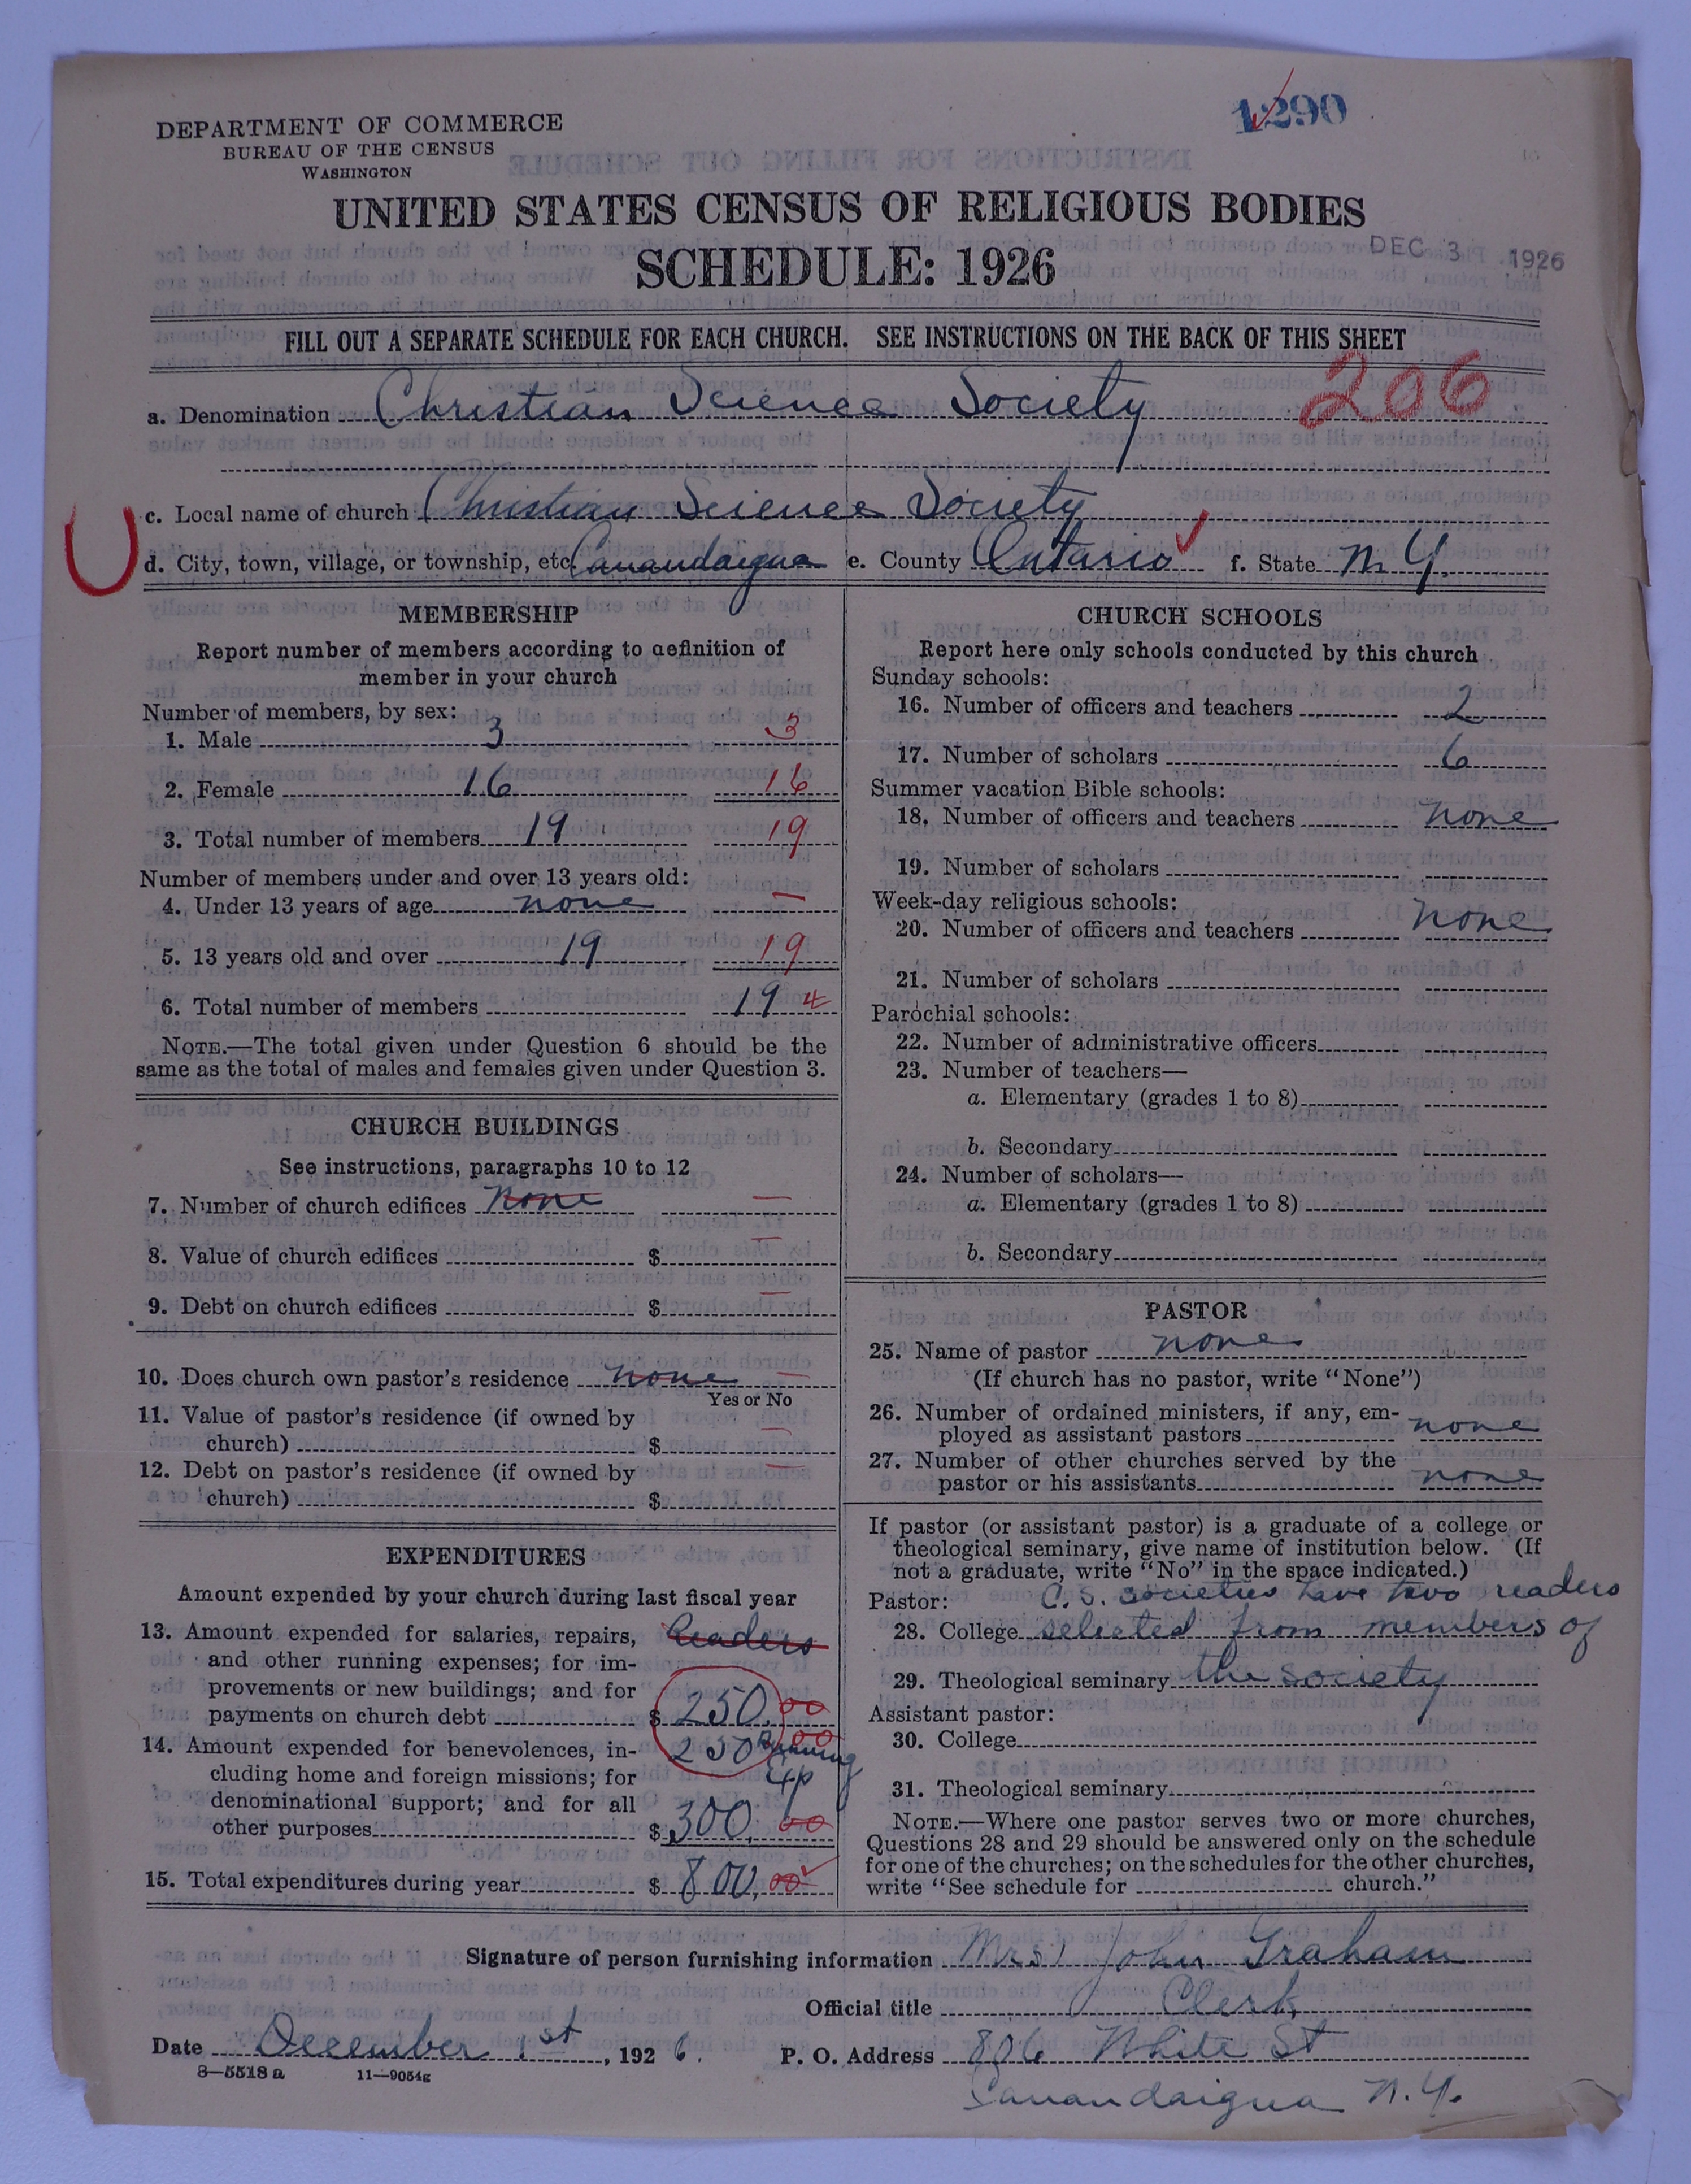 1290
DEPARTMENT OF COMMERCE
BUREAU OF THE CENSUS
WASHINGTON
UNITED STATES CENSUS OF RELIGIOUS BODIES
SCHEDULE: 1926
DEC 3 1926
FILL OUT A SEPARATE SCHEDULE FOR EACH CHURCH. SEE INSTRUCTIONS ON THE BACK OF THIS SHEET
206
a. Denomination Christian Science Society
c. Local name of church Christian Science Society
d. City, town, village, or township, etc. Canandaigua e. County Ontario f. State N.Y.
MEMBERSHIP
Report number of members according to definition of
member in your church
Number of members, by sex:
1. Male 3 3
2. Female 16 16
3. Total number of members 19 19
Number of members under and over 13 years old:
4. Under 13 years of age none —
5. 13 years old and over 19 19
6. Total number of members 19 4
NOTE.—The total given under Question 6 should be the
same as the total of males and females given under Question 3.
CHURCH BUILDINGS
See instructions, paragraphs 10 to 12
7. Number of church edifices none —
8. Value of church edifices $ —
9. Debt on church edifices $ —
10. Does church own pastor's residence none —
Yes or No
11. Value of pastor's residence (if owned by
church) $ —
12. Debt on pastor's residence (if owned by
church) $ —
EXPENDITURES
Amount expended by your church during last fiscal year
13. Amount expended for salaries, repairs, Readers
and other running expenses; for im-
provements or new buildings; and for
payments on church debt $ 250.00
14. Amount expended for benevolences, in- 250 00 Running
cluding home and foreign missions; for Exp
denominational support; and for all
other purposes $ 300.00
15. Total expenditures during year $ 800.00
CHURCH SCHOOLS
Report here only schools conducted by this church
Sunday schools:
16. Number of officers and teachers 2
17. Number of scholars 6
Summer vacation Bible schools:
18. Number of officers and teachers none
19. Number of scholars
Week-day religious schools:
20. Number of officers and teachers none
21. Number of scholars
Parochial schools:
22. Number of administrative officers
23. Number of teachers—
a. Elementary (grades 1 to 8)
b. Secondary
24. Number of scholars—
a. Elementary (grades 1 to 8)
b. Secondary
PASTOR
25. Name of pastor none
(If church has no pastor, write "None")
26. Number of ordained ministers, if any, em-
ployed as assistant pastors none
27. Number of other churches served by the
pastor or his assistants none
If pastor (or assistant pastor) is a graduate of a college or
theological seminary, give name of institution below. (If
not a graduate, write "No" in the space indicated.)
Pastor: C. S. Societies have two readers
28. College selected from members of
29. Theological seminary the society
Assistant pastor:
30. College
31. Theological seminary
NOTE.—Where one pastor serves two or more churches,
Questions 28 and 29 should be answered only on the schedule
for one of the churches; on the schedules for the other churches,
write "See schedule for church."
Signature of person furnishing information Mrs. John Graham
Official title Clerk
Date December 1st, 1926. P. O. Address 806 White St
8—5518 a 11—9054g
Canandaigua N.Y.